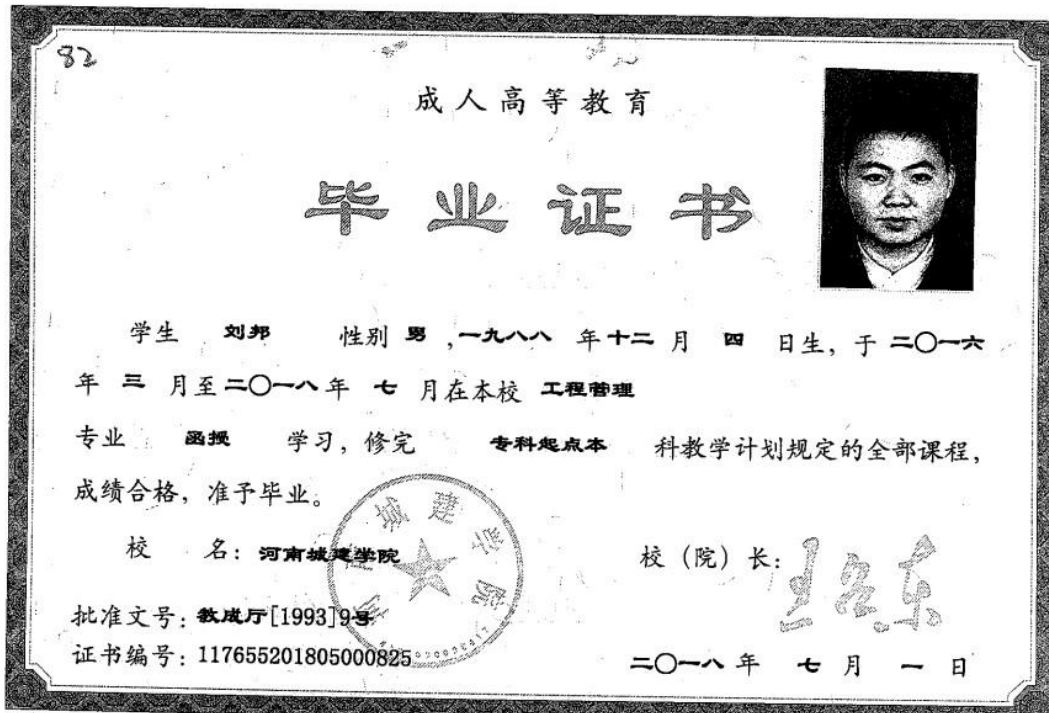 82
成人高等教育
毕业证书
学生 刘邦 性别 男 ,一九八八 年 十二 月 四 日生, 于 二〇一六
年 三 月至 二〇一八 年 七 月在本校 工程管理
专业 函授 学习, 修完 专科起点本 科教学计划规定的全部课程,
成绩合格, 准予毕业。
校 名: 河南城建学院
校 (院) 长:
河南城建学院
批准文号: 教成厅[1993]9号
证书编号: 117655201805000825
二〇一八 年 七 月 一 日